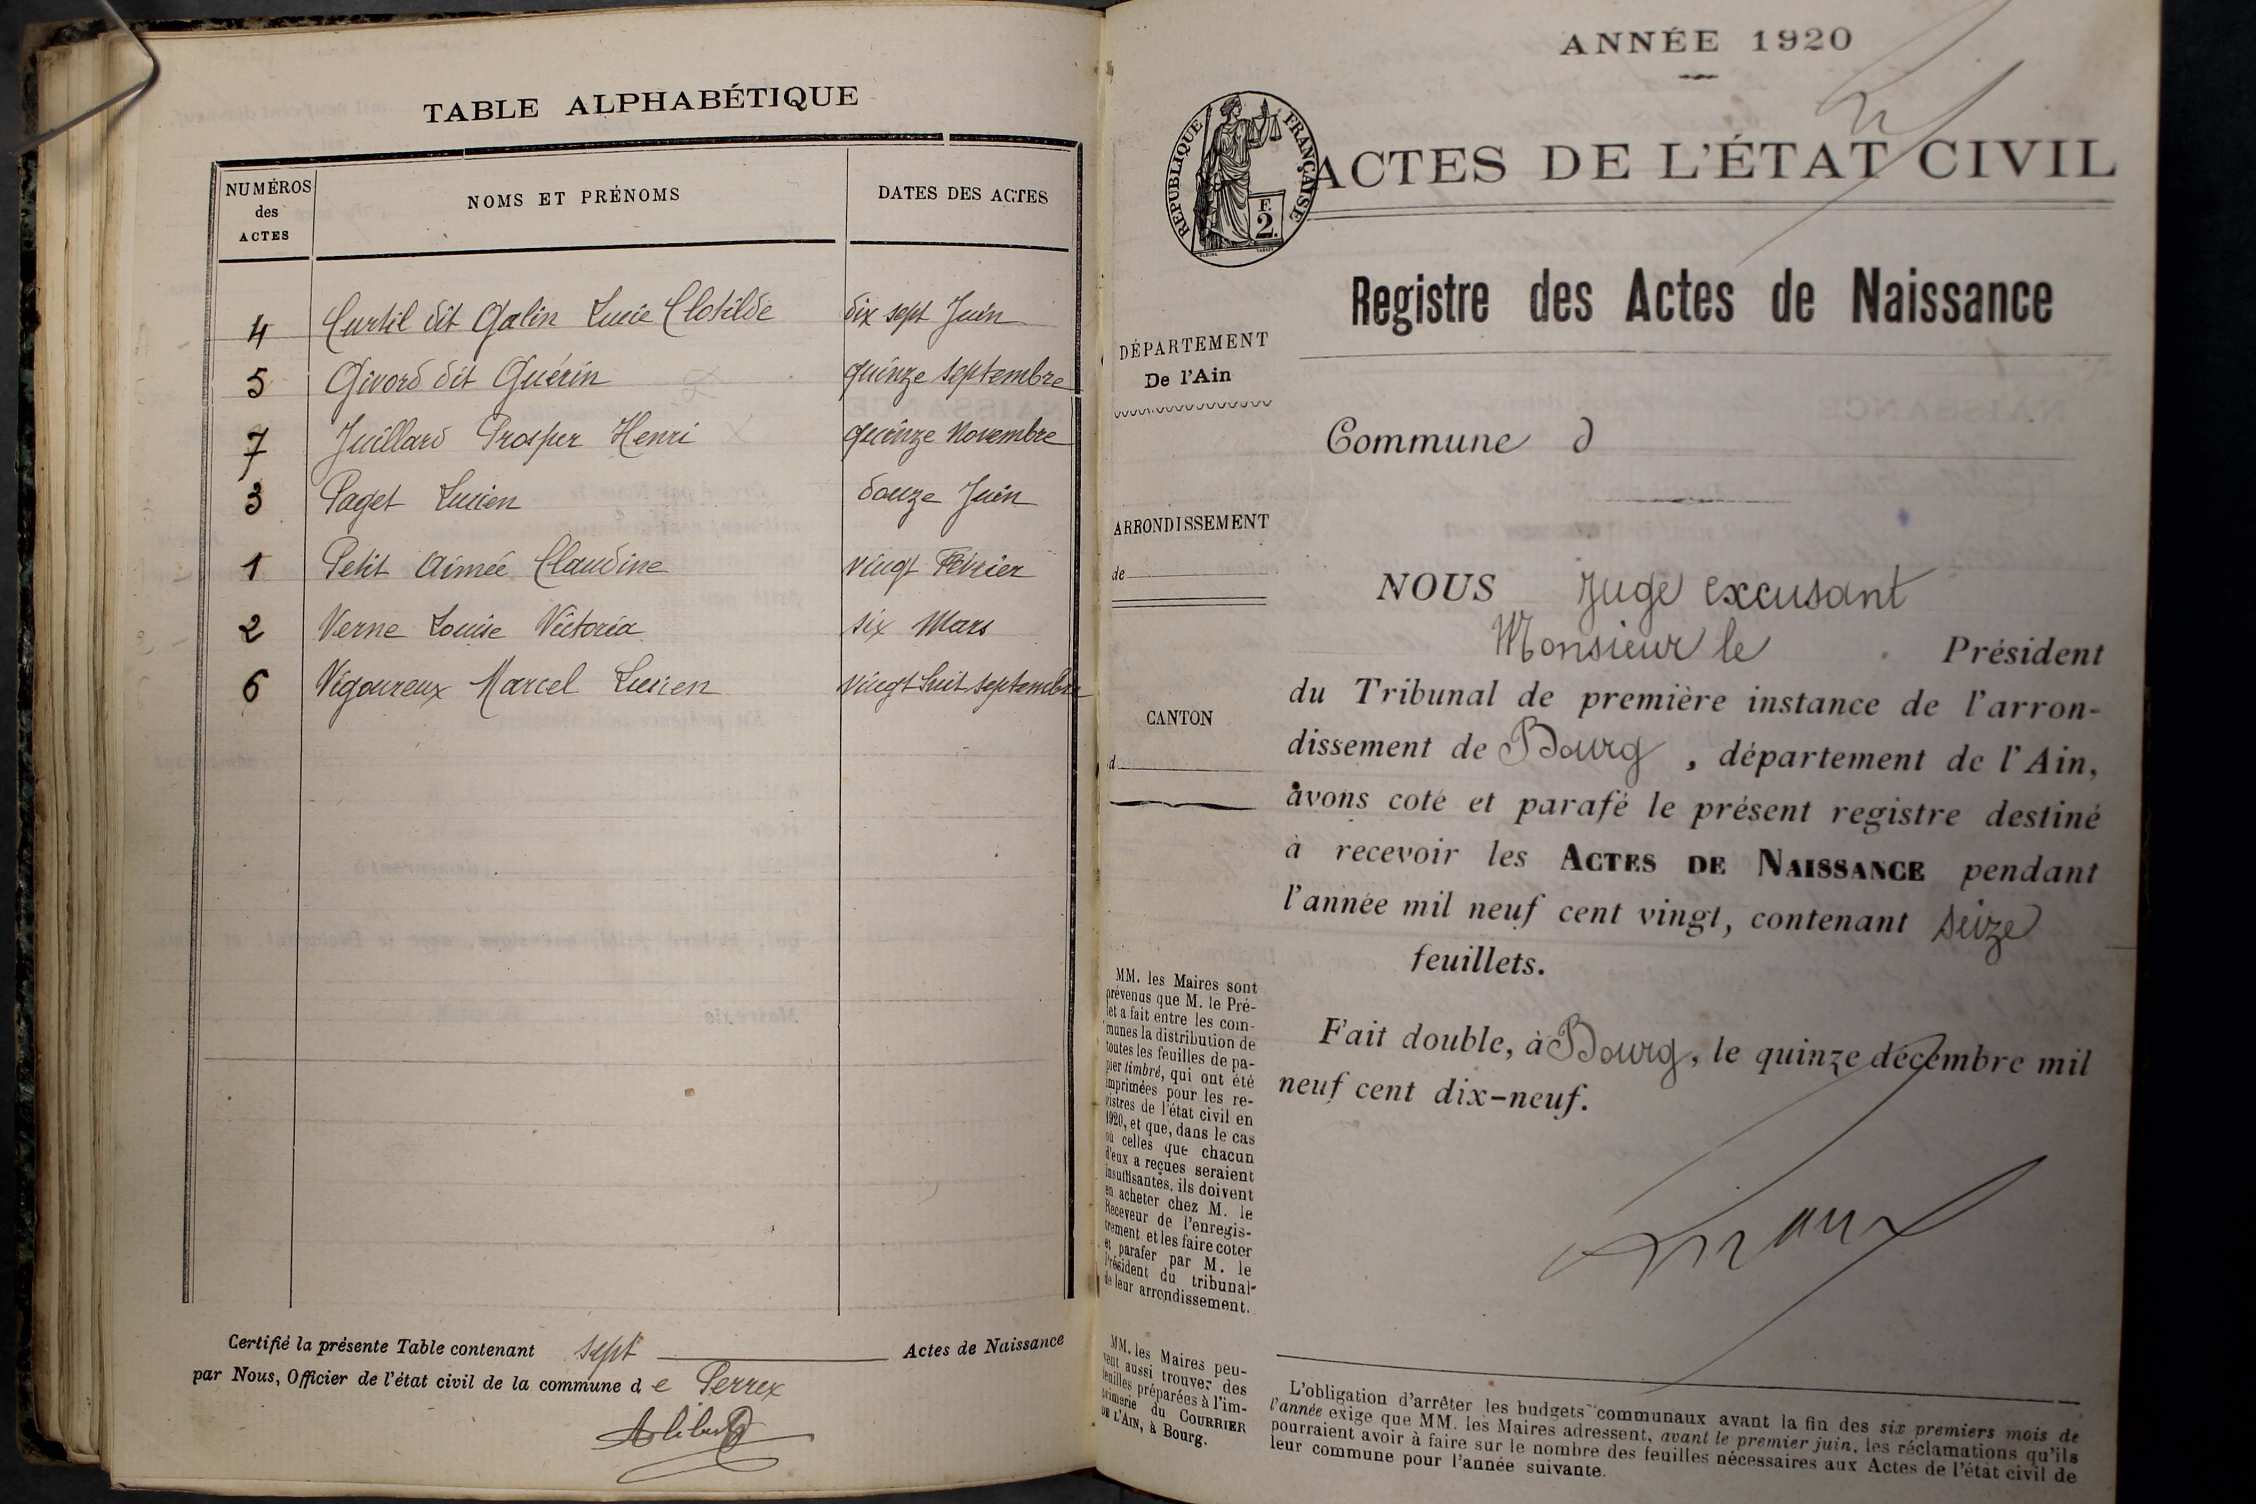 TABLE ALPHABÉTIQUE
NUMÉROS
des
ACTES
NOMS ET PRÉNOMS
DATES DES ACTES
4 Curtil dit Galin Lucie Clotilde dix sept Juin
5 Givord dit Guérin quinze septembre
7 Juillard Prosper Henri quinze Novembre
3 Paget Lucien douze Juin
1 Petit Aimée Claudine vingt Février
2 Verne Louise Victoria six Mars
6 Vigoureux Marcel Lucien vingt huit septembre
Certifié la présente Table contenant sept Actes de Naissance
par Nous, Officier de l'état civil de la commune de Perrex
ANNÉE 1920
RÉPUBLIQUE FRANÇAISE
F.
2.
ACTES DE L'ÉTAT CIVIL
Registre des Actes de Naissance
DÉPARTEMENT
De l'Ain
Commune d
ARRONDISSEMENT
de
CANTON
d
NOUS Juge excusant
Monsieur le Président
du Tribunal de première instance de l'arron-
dissement de Bourg, département de l'Ain,
avons coté et parafé le présent registre destiné
à recevoir les ACTES DE NAISSANCE pendant
l'année mil neuf cent vingt, contenant seize
feuillets.
Fait double, à Bourg, le quinze décembre mil
neuf cent dix-neuf.
MM. les Maires sont
prévenus que M. le Pré-
fet a fait entre les com-
munes la distribution de
toutes les feuilles de pa-
pier timbré, qui ont été
imprimées pour les re-
gistres de l'état civil en
1920, et que, dans le cas
où celles que chacun
d'eux a reçues seraient
insuffisantes, ils doivent
en acheter chez M. le
Receveur de l'enregis-
trement et les faire coter
et parafer par M. le
Président du tribunal
de leur arrondissement.
MM. les Maires peu-
vent aussi trouver des
feuilles préparées à l'im-
primerie du COURRIER
DE L'AIN, à Bourg.
L'obligation d'arrêter les budgets communaux avant la fin des six premiers mois de
l'année exige que MM. les Maires adressent, avant le premier juin, les réclamations qu'ils
pourraient avoir à faire sur le nombre des feuilles nécessaires aux Actes de l'état civil de
leur commune pour l'année suivante.